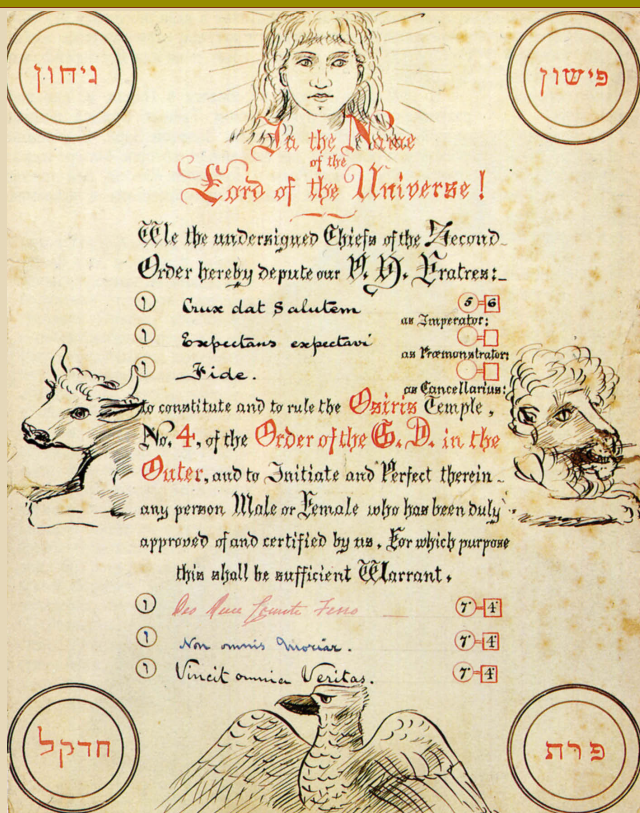 גיחון
פישון
In the Name
of the
Lord of the Universe!
We the undersigned Chiefs of the Second
Order hereby depute our V. H. Fratres:
1 Crux dat Salutem 5 = 6
as Imperator:
1 Expectans expectavi =
as Præmonstrator:
1 Fide. =
as Cancellarius:
to constitute and to rule the Osiris Temple,
No. 4, of the Order of the G. D. in the
Outer, and to Initiate and Perfect therein
any person Male or Female who has been duly
approved of and certified by us. For which purpose
this shall be sufficient Warrant.
1 Deo Duce Comite Ferro 7 = 4
1 Non omnis Moriar. 7 = 4
1 Vincit omnia Veritas. 7 = 4
חדקל
פרת